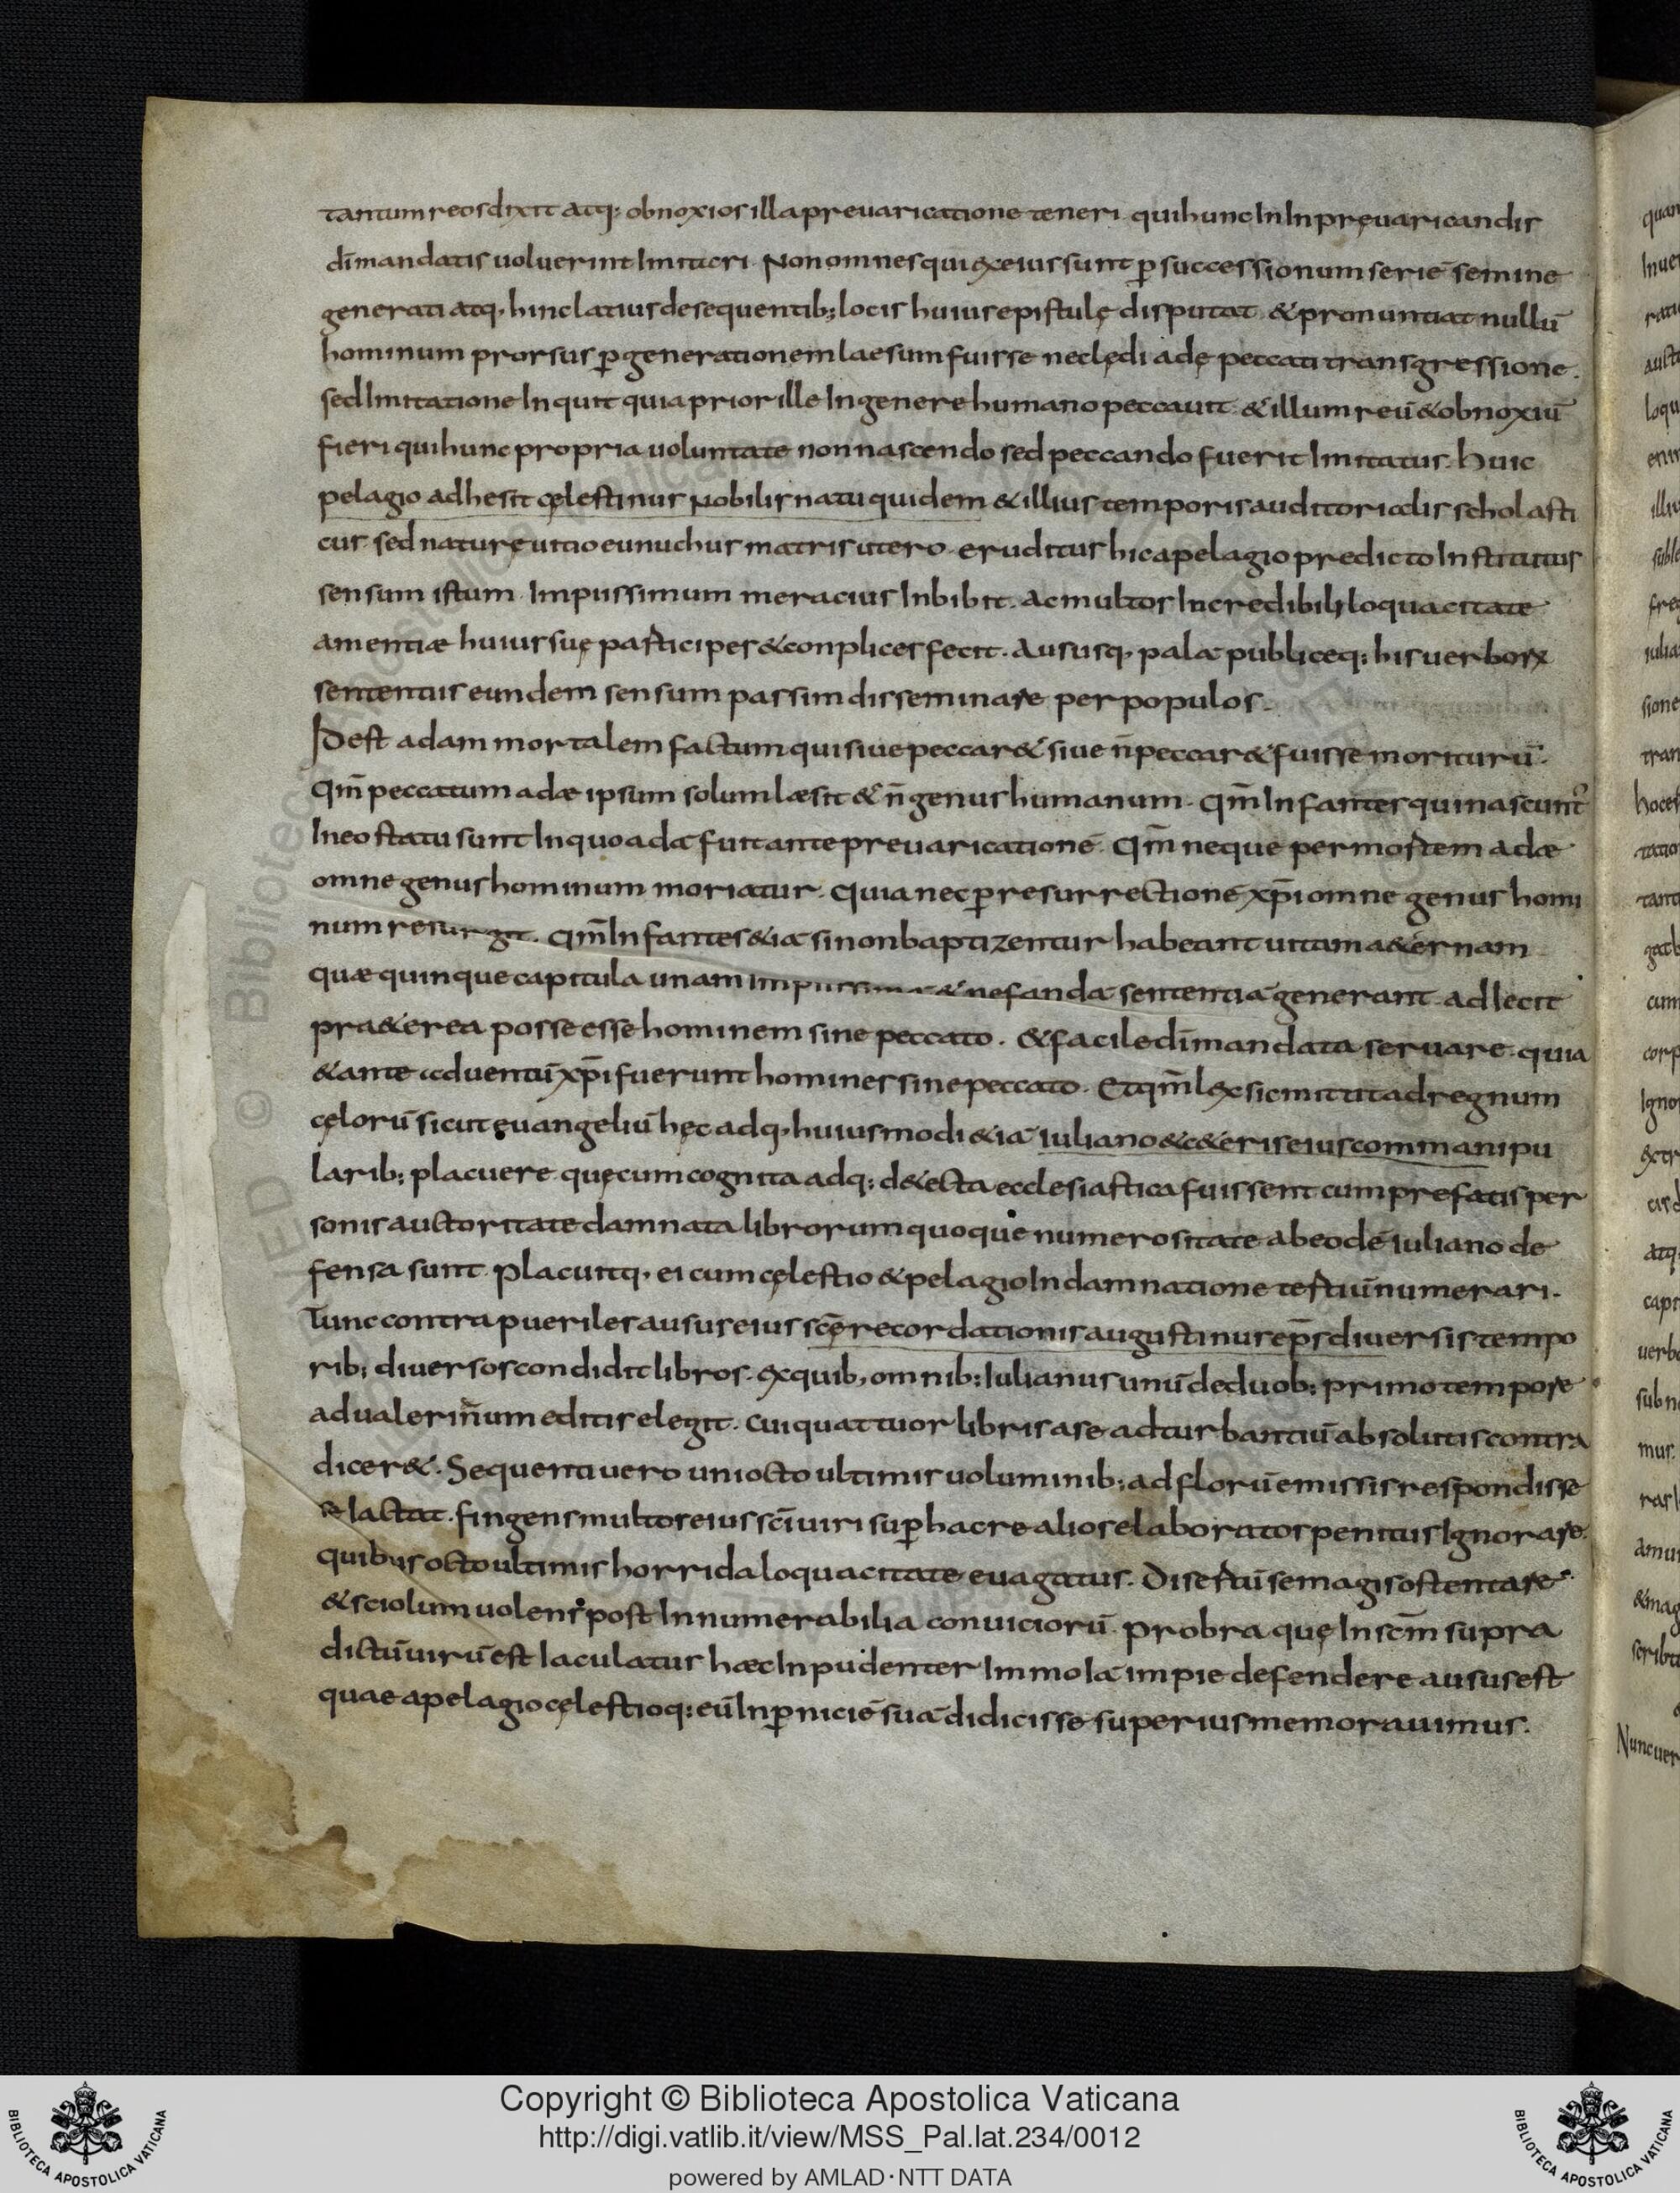 tantum reos dixit atq: obnoxios illa preuaricatione teneri. qui hunc In In pręuaricandis
dī mandatis uoluerint Imitari. Non omnes qui ex eius sunt ꝑ successionum seriē semine
generati atq, hinc latius de sequentib; locis huius epistulę disputat. & pronuntiat nullū
hominum prorsus ꝑ generationem laesum fuisse nec lędi adę peccati transgressione.
sed Imitatione Inquit quia prior ille In genere humano peccauit. & illum reū & obnoxiū
fieri qui hunc propria uoluntate non nascendo sed peccando fuerit Imitatus. huic
pelagio adhesit cęlestinus Nobilis natu quidem & illius temporis auditorialis scholasti
cus. sed naturę uitio eunuchus matris utero. eruditus hic a pelagio predicto Institutus
sensum istum. Impiissimum meracius Inbibit. ac multos Incredibili loquacitate
amentiæ huius suę participes & conplices fecit. Aususq, palā publiceq: his uerborꝝ
sententiis eundem sensum passim disseminare per populos.
Id est adam mortalem factum qui siue peccar& siue n̄ peccar& fuisse moriturū.
Qm̄ peccatum adæ ipsum solum læsit & n̄ genus humanum. Qm̄ Infantes qui nascunt᷒
In eo statu sunt In quo adā fuit ante preuaricationē. Qm̄ neque per mortem adæ
omne genus hominum moriatur. Quia nec ꝑ resurrectionē xp̄i omne genus homi
num resurgit. Qm̄ Infantes &iā si non baptizentur habeant uitam a&ernam
quæ quinque capitula unam impiissimā & nefandā sententiā generant. adIecit
pra&erea posse esse hominem sine peccato. & facile dī mandata seruare. quia
& ante aduentū xp̄i fuerunt homines sine peccato. Et qm̄ lex sic mittit ad regnum
cęlorū sicut euangeliū hęc adq, huiusmodi &iā iuliano & c&eris eius commanipu
larib; placuere. quę cum cognita adq: d&ecta ecclesiastica fuissent cum prefatis per
sonis auctoritate damnata librorum quoque numerositate ab eodē iuliano de
fensa sunt. Placuitq, ei cum cęlestio & pelagio In damnatione testiū numerari.
Tunc contra pueriles ausus eius scē recordationis augustinus ep̄s diuersis tempo
rib; diuersos condidit libros. ex quib, omnib: Iulianus unū de duob; primo tempore
ad ualerin̄um editis elegit. cui quattuor libris a se ad turbantiū absolutis contra
dicer&. Sequenti uero uni octo ultimis uoluminib: ad florū emissis respondisse
se Iactat. fingens multos eius scī uiri suꝑ hac re alios elaboratos penitus Ignorare.
quibus octo ultimis horrida loquacitate euagatus. Disertū se magis ostentare
& sciolum uolens post Innumerabilia conuiciorū. probra quę In scm̄ supra
dictū uirū est Iaculatus hæc Inpudenter Immo Iā impie defendere ausus est
quae a pelagio cęlestioq: eū In ꝑniciē suā didicisse superius memorauimus.
Copyright © Biblioteca Apostolica Vaticana
http://digi.vatlib.it/view/MSS_Pal.lat.234/0012
powered by AMLAD·NTT DATA